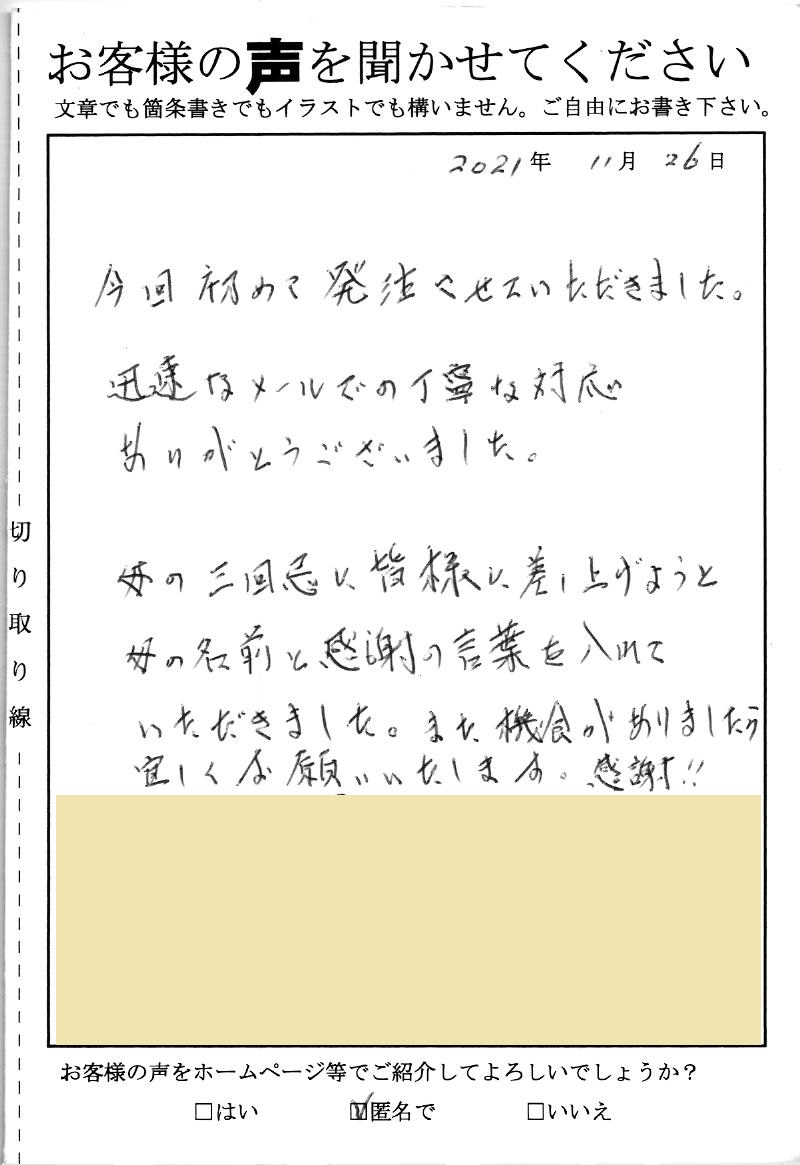 お客様の声を聞かせてください
文章でも箇条書きでもイラストでも構いません。ご自由にお書き下さい。
2021年 11月 26日
今回初めて発注させていただきました。
迅速なメールでの丁寧な対応
ありがとうございました。
母の三回忌に皆様に差し上げようと
母の名前と感謝の言葉を入れて
いただきました。また機会がありましたら
宜しくお願いいたします。感謝!!
切り取り線
お客様の声をホームページ等でご紹介してよろしいでしょうか?
□はい ☑匿名で □いいえ